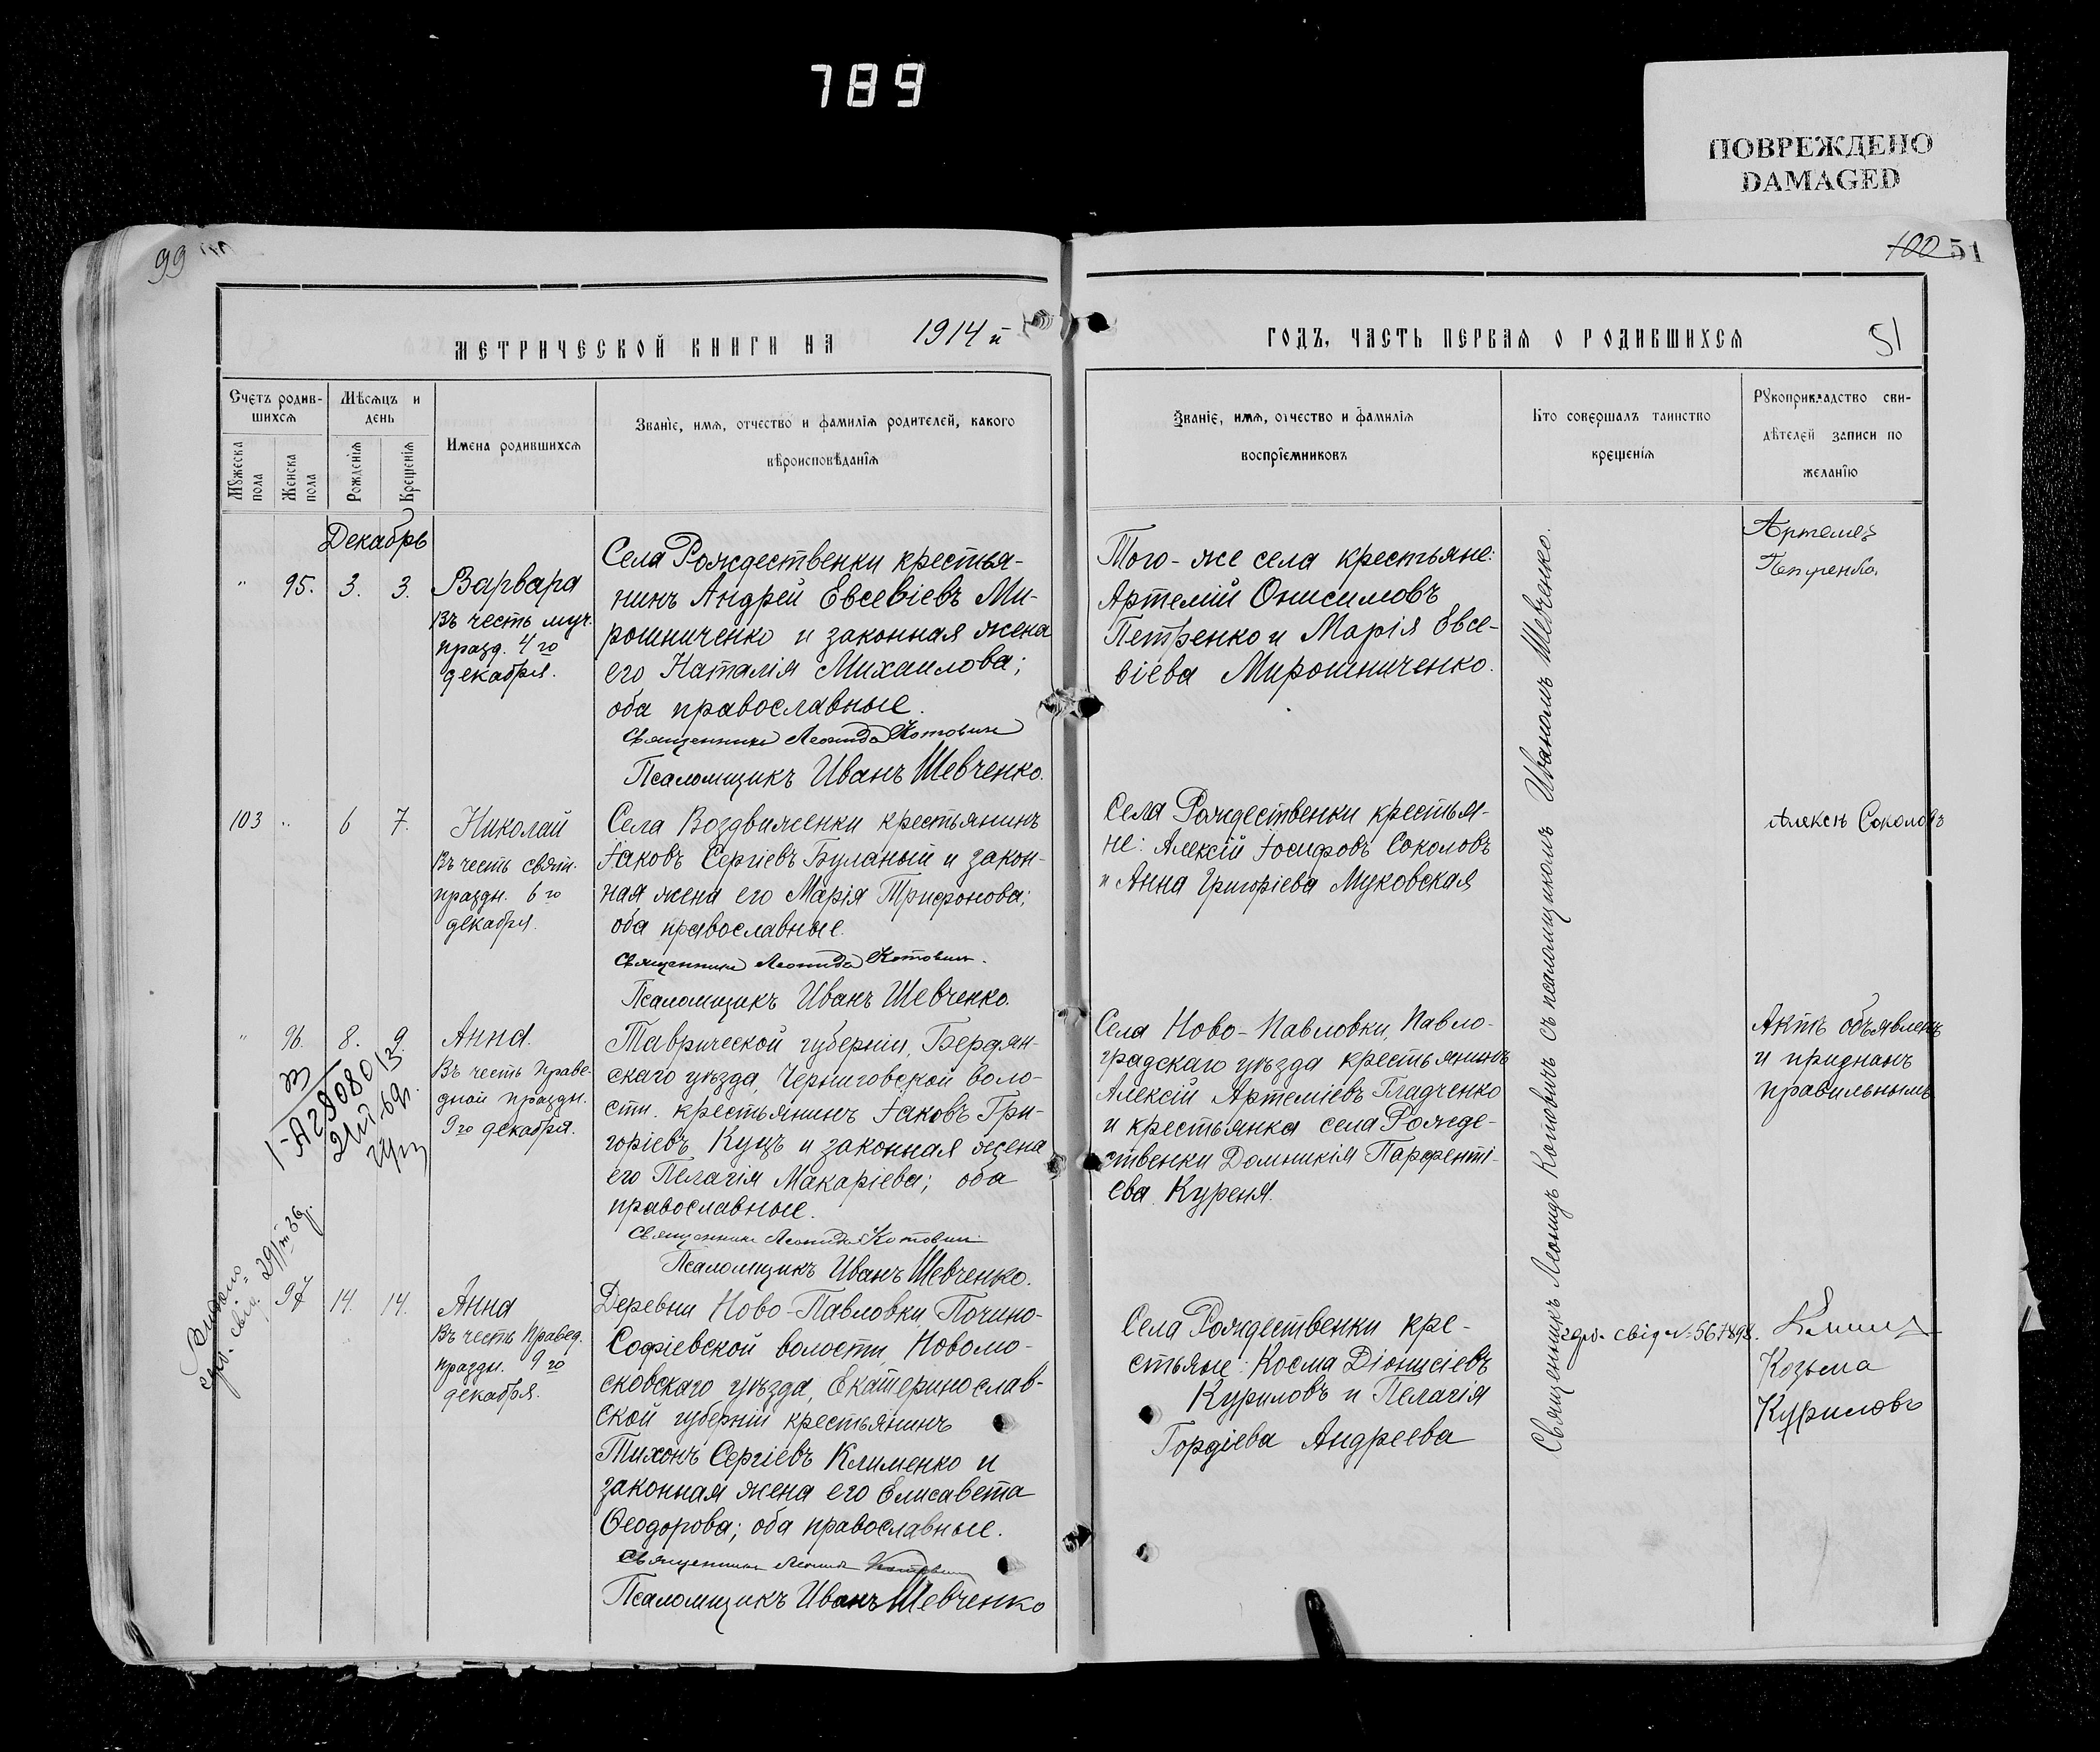 789
ПОВРЕЖДЕНО
DAMAGED
99
100 51
МЕТРИЧЕСКОЙ КНИГИ НА 1914 й
Счетъ родив-
шихся
Мужеска
пола
Женска
пола
Мѣсяцъ и
день
Рожденія
Крещенія
Имена родившихся
Званіе, имя, отчество и фамилія родителей, какого
вѣроисповѣданія
Декабрь
" 95. 3. 3.
Варвара
Въ честь муч.
празд. 4 го
декабря.
Села Рождественки крестья-
нинъ Андрей Евсевіевъ Ми-
рошниченко и законная жена
его Наталія Михаилова;
оба православные.
Священникъ Леонидъ Котовичъ
Псаломщикъ Иванъ Шевченко.
103 " 6 7.
Николай
Въ честь свят.
праздн. 6 го
декабря.
Села Воздвиженки крестьянинъ
Іаковъ Сергіевъ Буланый и закон-
ная жена его Марія Трифонова;
оба православные.
Священникъ Леонидъ Котовичъ.
Псаломщикъ Иванъ Шевченко.
" 96. 8. 9.
Анна.
Въ честь Праве-
дной праздн.
9 го декабря.
Таврической губерніи, Бердян-
скаго уѣзда, Черниговской воло-
сти. крестьянинъ Іаковъ Гри-
горіевъ Куцъ и законная жена
его Пелагія Макаріева; оба
православные.
Священникъ Леонидъ Котовичъ
Псаломщикъ Иванъ Шевченко.
97 14. 14.
Анна
Въ честь Правед.
праздн. 9 го
декабря.
Деревни Ново-Павловки, Почино-
Софіевской волости Новомо-
сковскаго уѣзда, Екатеринослав-
ской губерніи крестьянинъ
Тихонъ Сергіевъ Клименко и
законная жена его Елисавета
Ѳеодорова; оба православные.
Священникъ Леонидъ Котовичъ
Псаломщикъ Иванъ Шевченко
ГОДЪ, ЧАСТЬ ПЕРВАЯ О РОДИВШИХСЯ 51
Званіе, имя, отчество и фамилія
воспріемниковъ
Кто совершалъ таинство
крещенія
Рукоприкладство сви-
дѣтелей записи по
желанію
Того-же села крестьяне:
Артемій Онисимовъ
Петренко и Марія Евсе-
віева Мирошниченко.
Петренко.
Села Рождественки крестья-
не: Алексій Іосифовъ Соколовъ
и Анна Григоріева Муковская
Соколовъ
Села Ново-Павловки, Павло-
градскаго уѣзда крестьянинъ
Алексій Артеміевъ Гладченко
и крестьянка села Рожде-
ственки Домникія Парфенті-
ева Куреня.
Актъ объявленъ
и признанъ
правильнымъ
Села Рождественки кре-
стьяне: Косма Діонисіевъ
Куриловъ и Пелагія
Гордіева Андреева
Козьма
Куриловъ
Священникъ Леонидъ Котовичъ съ псаломщикомъ Иваномъ Шевченко.